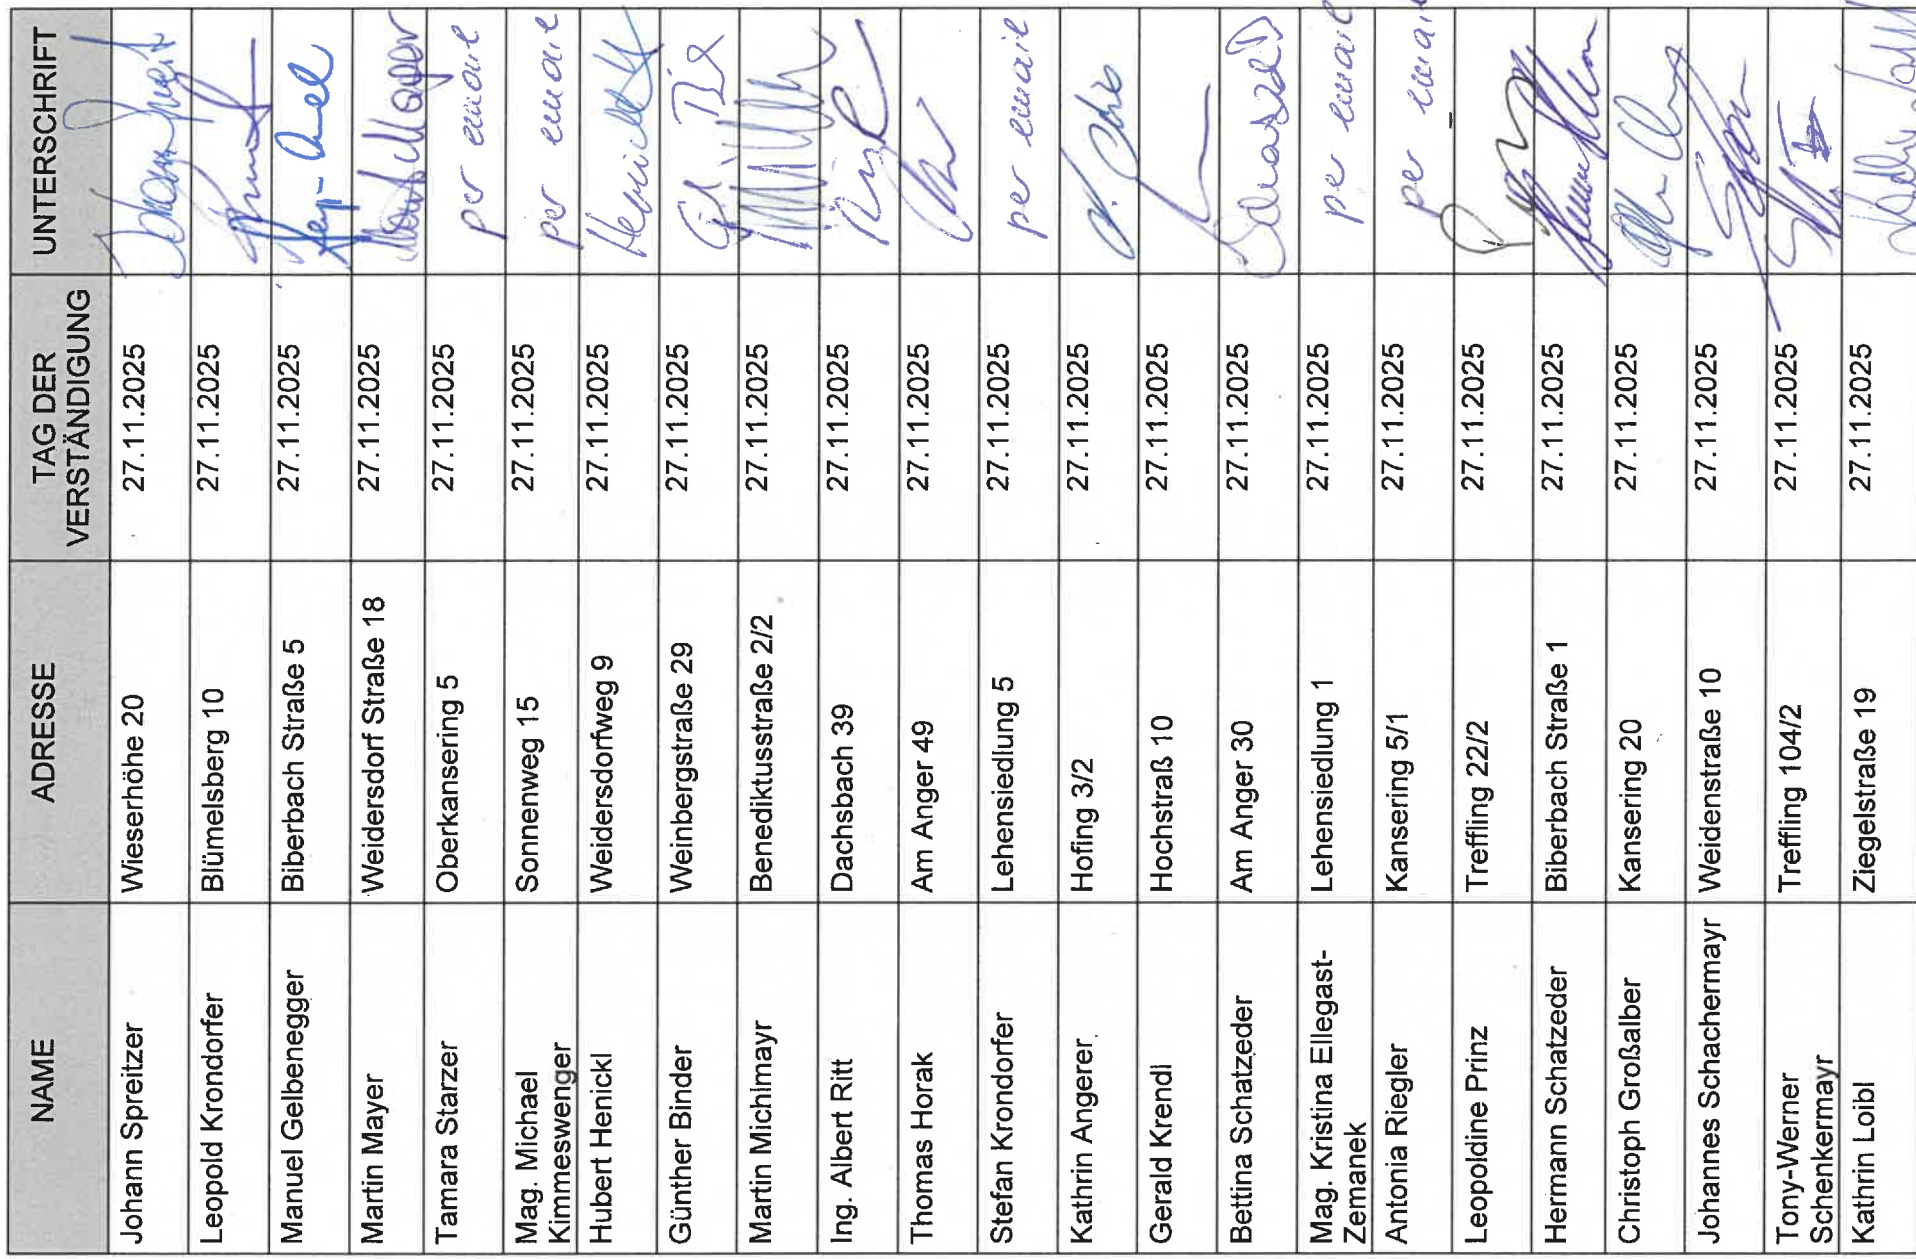 NAME ADRESSE TAG DER VERSTÄNDIGUNG UNTERSCHRIFT
Johann Spreitzer Wieserhöhe 20 27.11.2025
Leopold Krondorfer Blümelsberg 10 27.11.2025
Manuel Gelbenegger Biberbach Straße 5 27.11.2025
Martin Mayer Weidersdorf Straße 18 27.11.2025
Tamara Starzer Oberkansering 5 27.11.2025 per email
Mag. Michael Kimmeswenger Sonnenweg 15 27.11.2025 per email
Hubert Henickl Weidersdorfweg 9 27.11.2025
Günther Binder Weinbergstraße 29 27.11.2025
Martin Michlmayr Benediktusstraße 2/2 27.11.2025
Ing. Albert Ritt Dachsbach 39 27.11.2025
Thomas Horak Am Anger 49 27.11.2025
Stefan Krondorfer Lehensiedlung 5 27.11.2025 per email
Kathrin Angerer Hofing 3/2 27.11.2025
Gerald Krendl Hochstraß 10 27.11.2025
Bettina Schatzeder Am Anger 30 27.11.2025
Mag. Kristina Ellegast-Zemanek Lehensiedlung 1 27.11.2025 per email
Antonia Riegler Kansering 5/1 27.11.2025 per email
Leopoldine Prinz Treffling 22/2 27.11.2025
Hermann Schatzeder Biberbach Straße 1 27.11.2025
Christoph Großalber Kansering 20 27.11.2025
Johannes Schachermayr Weidenstraße 10 27.11.2025
Tony-Werner Schenkermayr Treffling 104/2 27.11.2025
Kathrin Loibl Ziegelstraße 19 27.11.2025